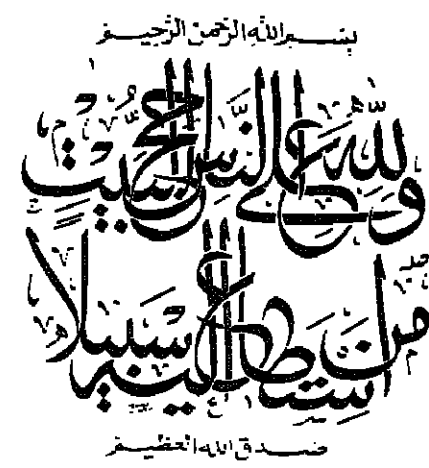 بسم الله الرحمن الرحيم
ولله على الناس حج البيت
من استطاع إليه سبيلا
صدق الله العظيم